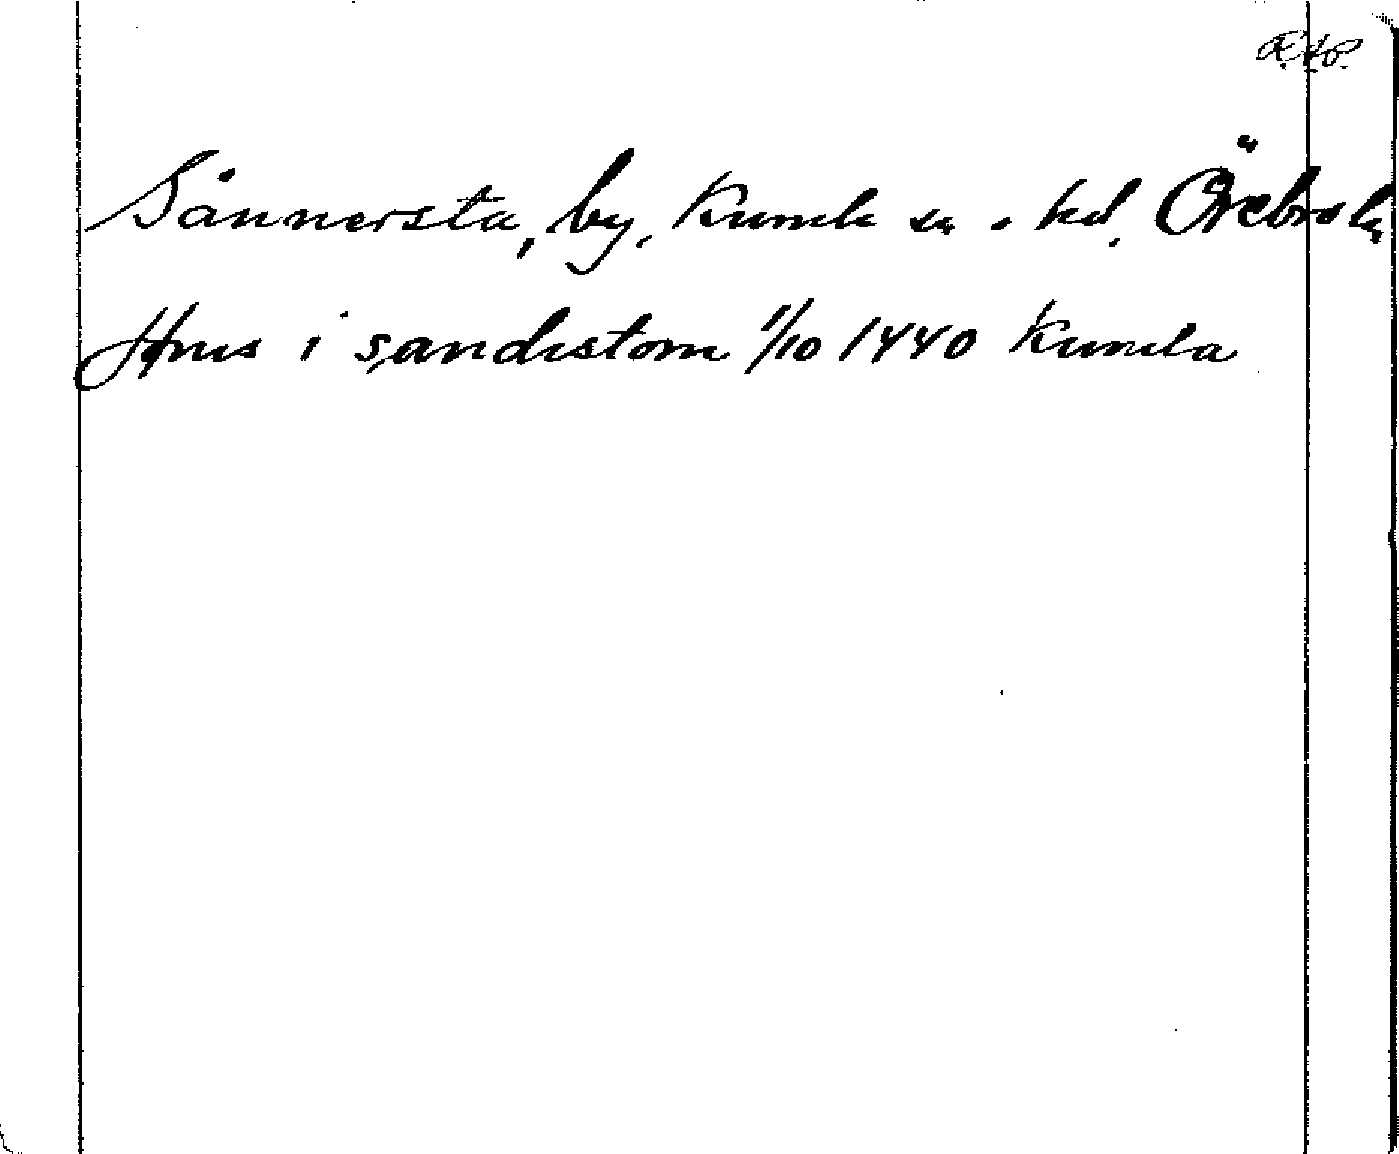 Sånnersta, by, Kumla sn. hd. Örebro l.
Jöns i sandstom 1/10 1440 Kumla